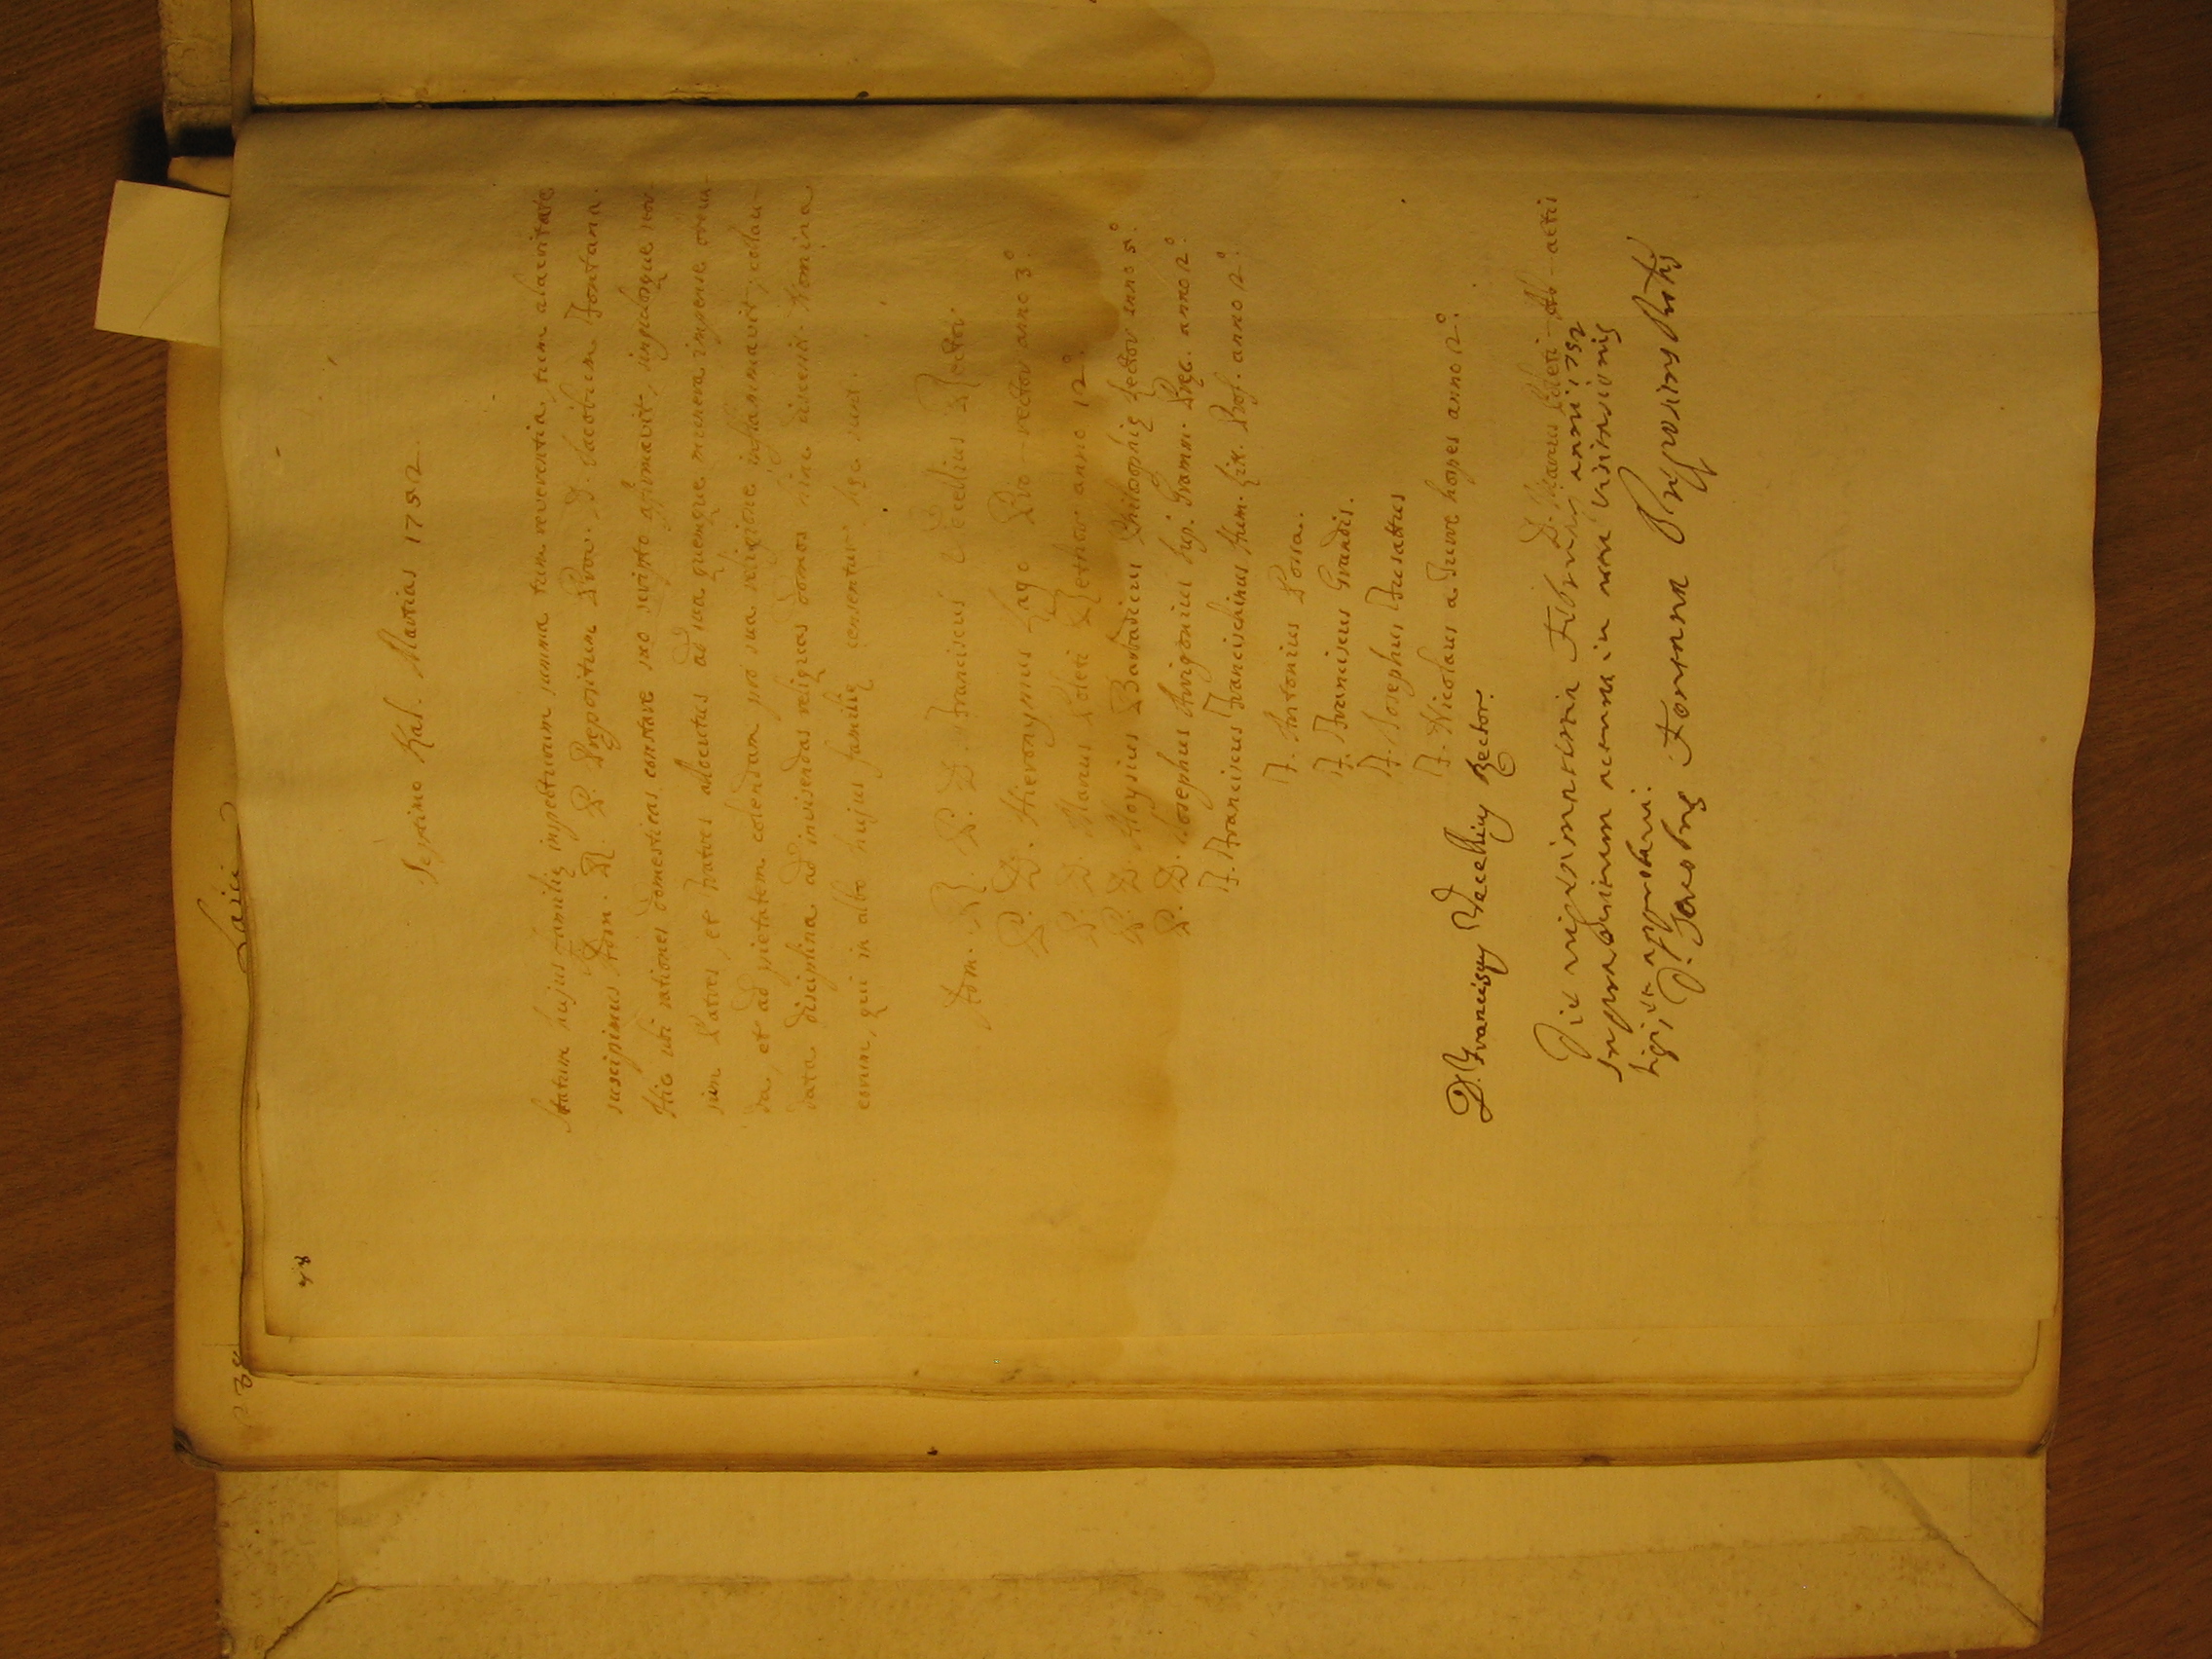 48
Septimo Kal. Martias 1752.
Statum hujus familię inspecturum summa tum reverentia, tum alacritate
suscipimus Adm. R. P. Prępositum Prov. D. Jacobum Fontana.
Hic ubi rationes domesticas constare suo scripto asfirmavit, singulosque nos-
sim Patres, et Fratres allocutus ad sua quemque munera impense obeun-
da, et ad pietatem colendam pro sua religione inflammavit; collau-
data disciplina ad invisendas reliquas domos hinc discessit. Nomina
eorum, qui in albo hujus familię censentur hęc sunt.
Adm. R. P. D. Franciscus Vecellius Rector.
P. D. Hieronymus Lago Pro-rector anno 3.º
P. D. Marcus Poleti Rethor anno 12.º
P. D. Aloysius Barbadicus Philosophię Lector anno 5.º
P. D. Josephus Avigonius Sup. Gramm. Pręc. anno 2.º
F. Franciscus Franceschinus Hum. Lit. Prof. anno 2.º
F. Antonius Possa.
F. Franciscus Grandis.
F. Josephus Brusattus
F. Nicolaus a Turre hospes anno 2.º
D. Franciscus Vecellius Rector.
D. Marcus Poleti Ab-actis
Die vigesimatertia Februarii anni 1752
Suprapositum actum in actu visitationis
legi, et approbavi.
D. Jacobus Fontana Prępositus Prȏlis
P. 38
Laici